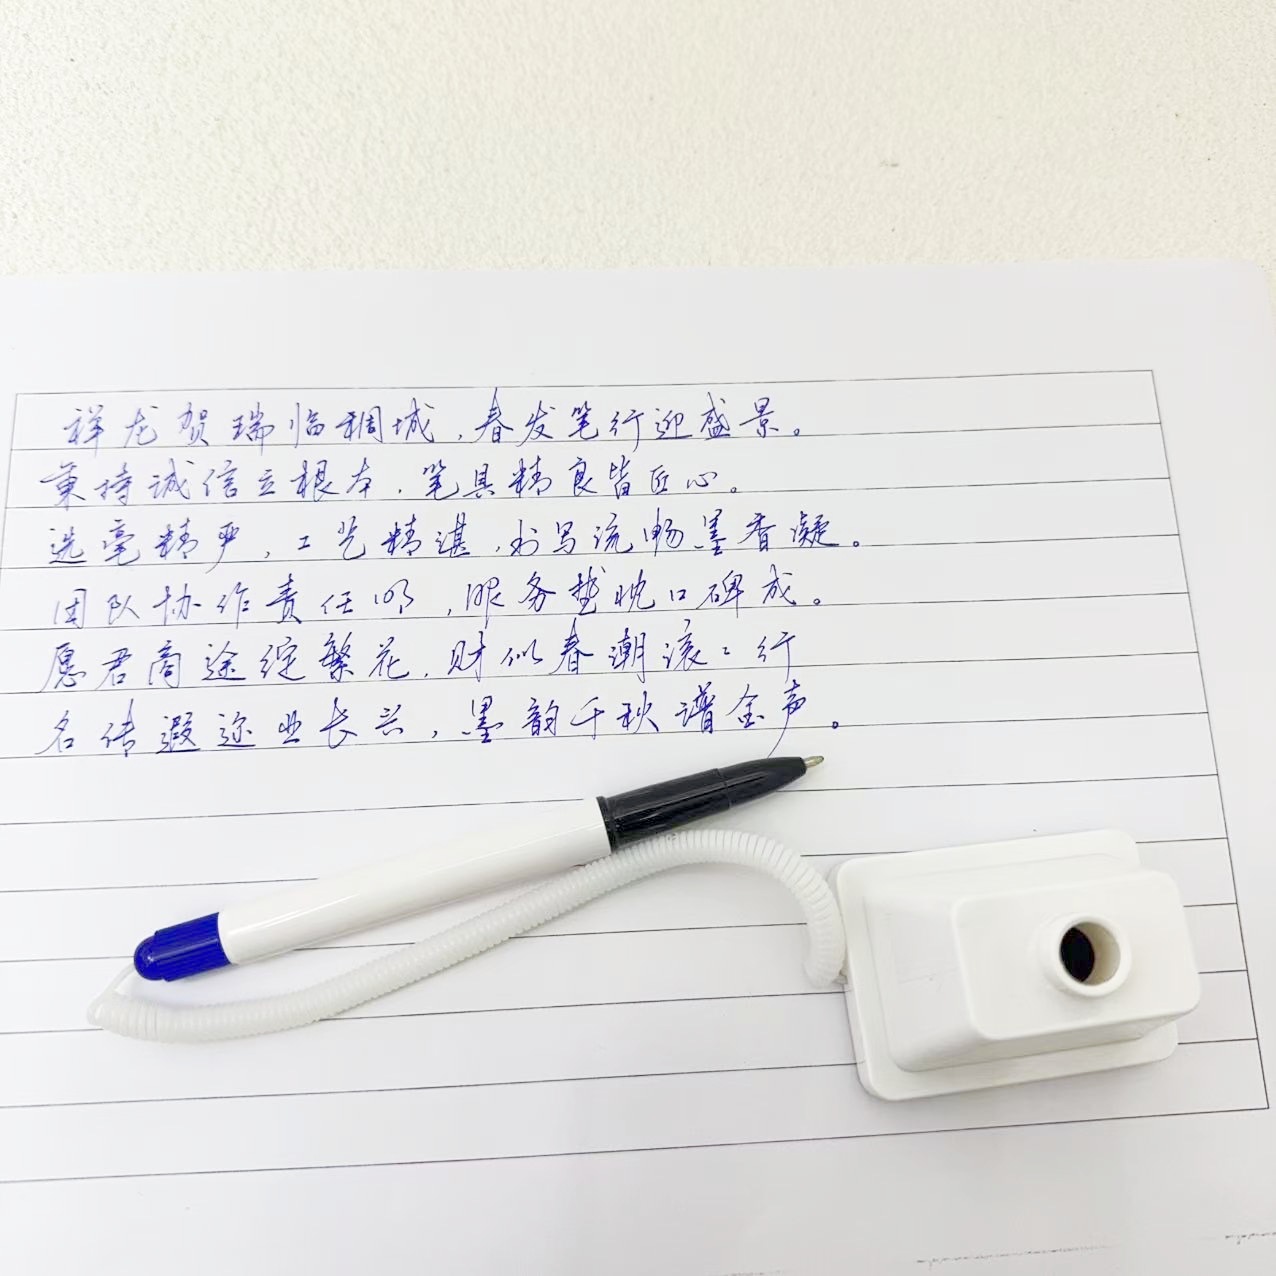 祥龙贺瑞临稠城，春发笔行迎盛景。
秉持诚信立根本，笔具精良皆匠心。
选毫精严，工艺精湛，书写流畅墨香凝。
团队协作责任明，服务楚悦口碑成。
愿君商途绽繁花，财似春潮滚滚行
名传遐迩业长兴，墨韵千秋谱金声。